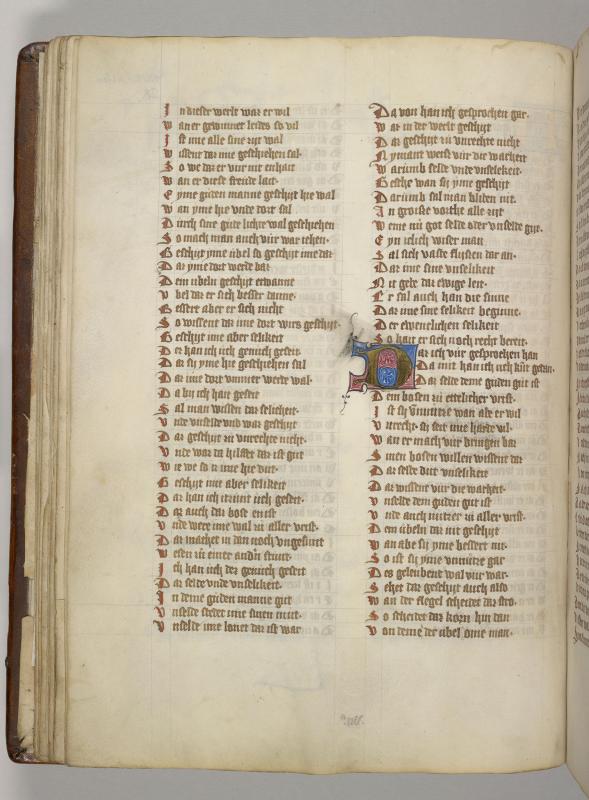 In dieser werlt waz er wil
wan er gewinnet leides so vil
Ist ime alle sine zijt wal
wissent daz ime geschiehen sal
So we daz er vur nit enhait
wan er diese freude lait
eyme guden manne geschijt hie wal
wan yme hie vnde dort sal
Durch sine gute liebte wal geschiehen
So mach man auch vur war iehen
Geschijt yme ubel so geschijt ime daz
Daz yme dort werde baz
Dem ubeln geschijt etwanne
vbel daz er sich besser danne
Bessert aber er sich nicht
So wissent daz ime dort wirs geschijt
Geschijt ime aber selikeit
Daz han ich uch genuch geseit
Daz sij yme hie geschiehen sal
Daz ime dort nummer werde wal
Da bij ich han geseit
Sal man wissen daz selicheit
vnde vnselde vnd waz geschijt
Daz geschijt zu vnrechte nicht
vnde waz da hilffet daz ist gut
wie we so iz ime hie dut
Geschijt ime aber selikeit
Daz han ich itzunt uch geseit
Daz auch daz bose en ist
vnde were ime wal zu aller vrist
Daz machet in dan noch vngesunt
wesen zu einer andern stunt
Ich han uch des genuch geseit
Daz selde vnde vnselikeit
In deme guden manne gut
vnselde stedet ime sinen mut
vnselde ime lonet daz ist war
Da von han ich gesprochen gar
waz in der werlt geschijt
Daz geschijt zu vnrechte nicht
Nymant weist vur die warheit
warumb selde vnde vnselekeit
Besche wan sij yme geschijt
Darumb sal man bliden nit
An groisse vorchte alle zijt
weme nu got selde oder vnselde gijt
Eyn ielich wiser man
Sal sich vaste flijsen dar an
Daz ime sine vnselikeit
Nit gebe daz ewige leit
Er sal auch han die sinne
Daz ime sine selikeit beginne
Der ewenclichen selikeit
So hait er sich noch recht bereit
Daz ich vur gesprochen han
Da mit han ich uch kunt getan
Daz selde deme guden gut ist
Dem bosen zu ettelicher vrist
Ist sij vnnutze wan abe er wil
vnrecht sij seit ime harde vil
wan er mach vur bringen baz
Sinen bosen willen wissent daz
Daz selde dut vnselikeit
Daz wissent vur die warheit
vnselde dem guden gut ist
vnde auch nutzer zu aller vrist
Dem ubeln daz nit geschijt
wan abe sij yme bessert nit
So ist sij yme vnnutze gar
Des geleubent wal vur war
Sehet daz geschijt auch also
wan der flegel scheidet daz stro
So scheidet daz korn hin dan
von deme der ubel ome man